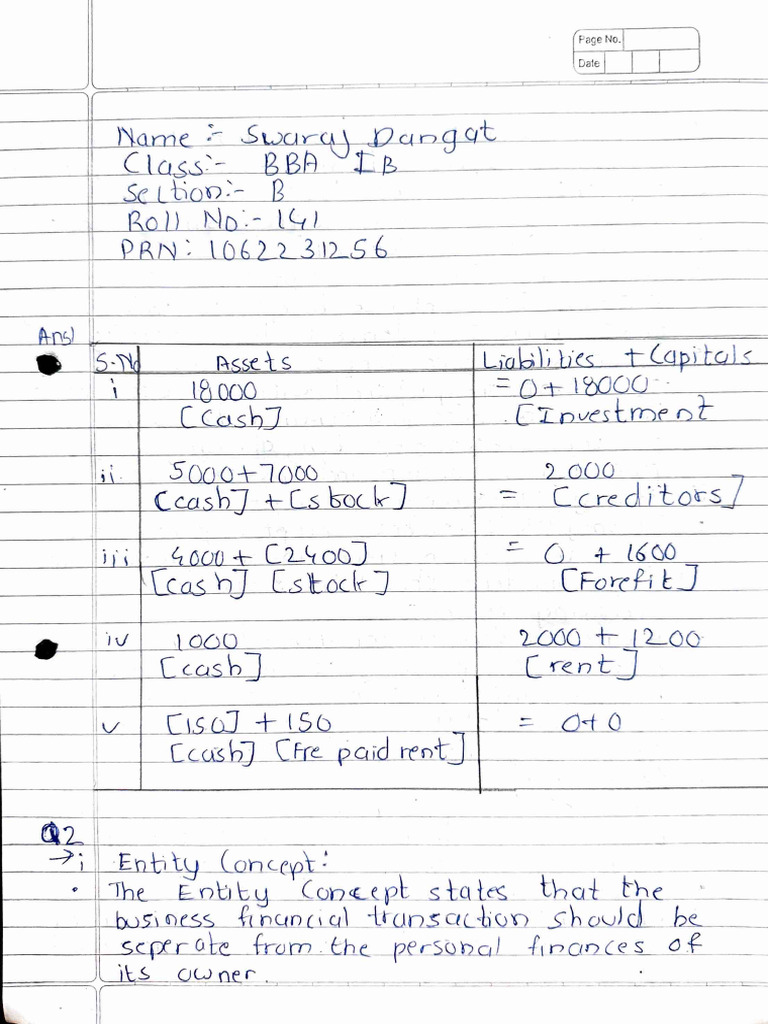 Page No.
Date
Name :- Swaraj Dangat
Class:- BBA IB
Section:- B
Roll No:- 141
PRN: 1062231256
Ans1
S.No Assets Liabilities + Capitals
i 18000 = 0 + 18000
[Cash] [Investment
ii 5000+7000 2000
[cash] + [stock] = [creditors]
iii 4000 + [2400] = 0 + 1600
[cash] [stock] [Forefit]
iv 1000 2000 + 1200
[cash] [rent]
v [150] + 150 = 0+0
[cash] [Fre paid rent]
Q2
→ i Entity Concept:
• The Entity Concept states that the
business financial transaction should be
seperate from the personal finances of
its owner.